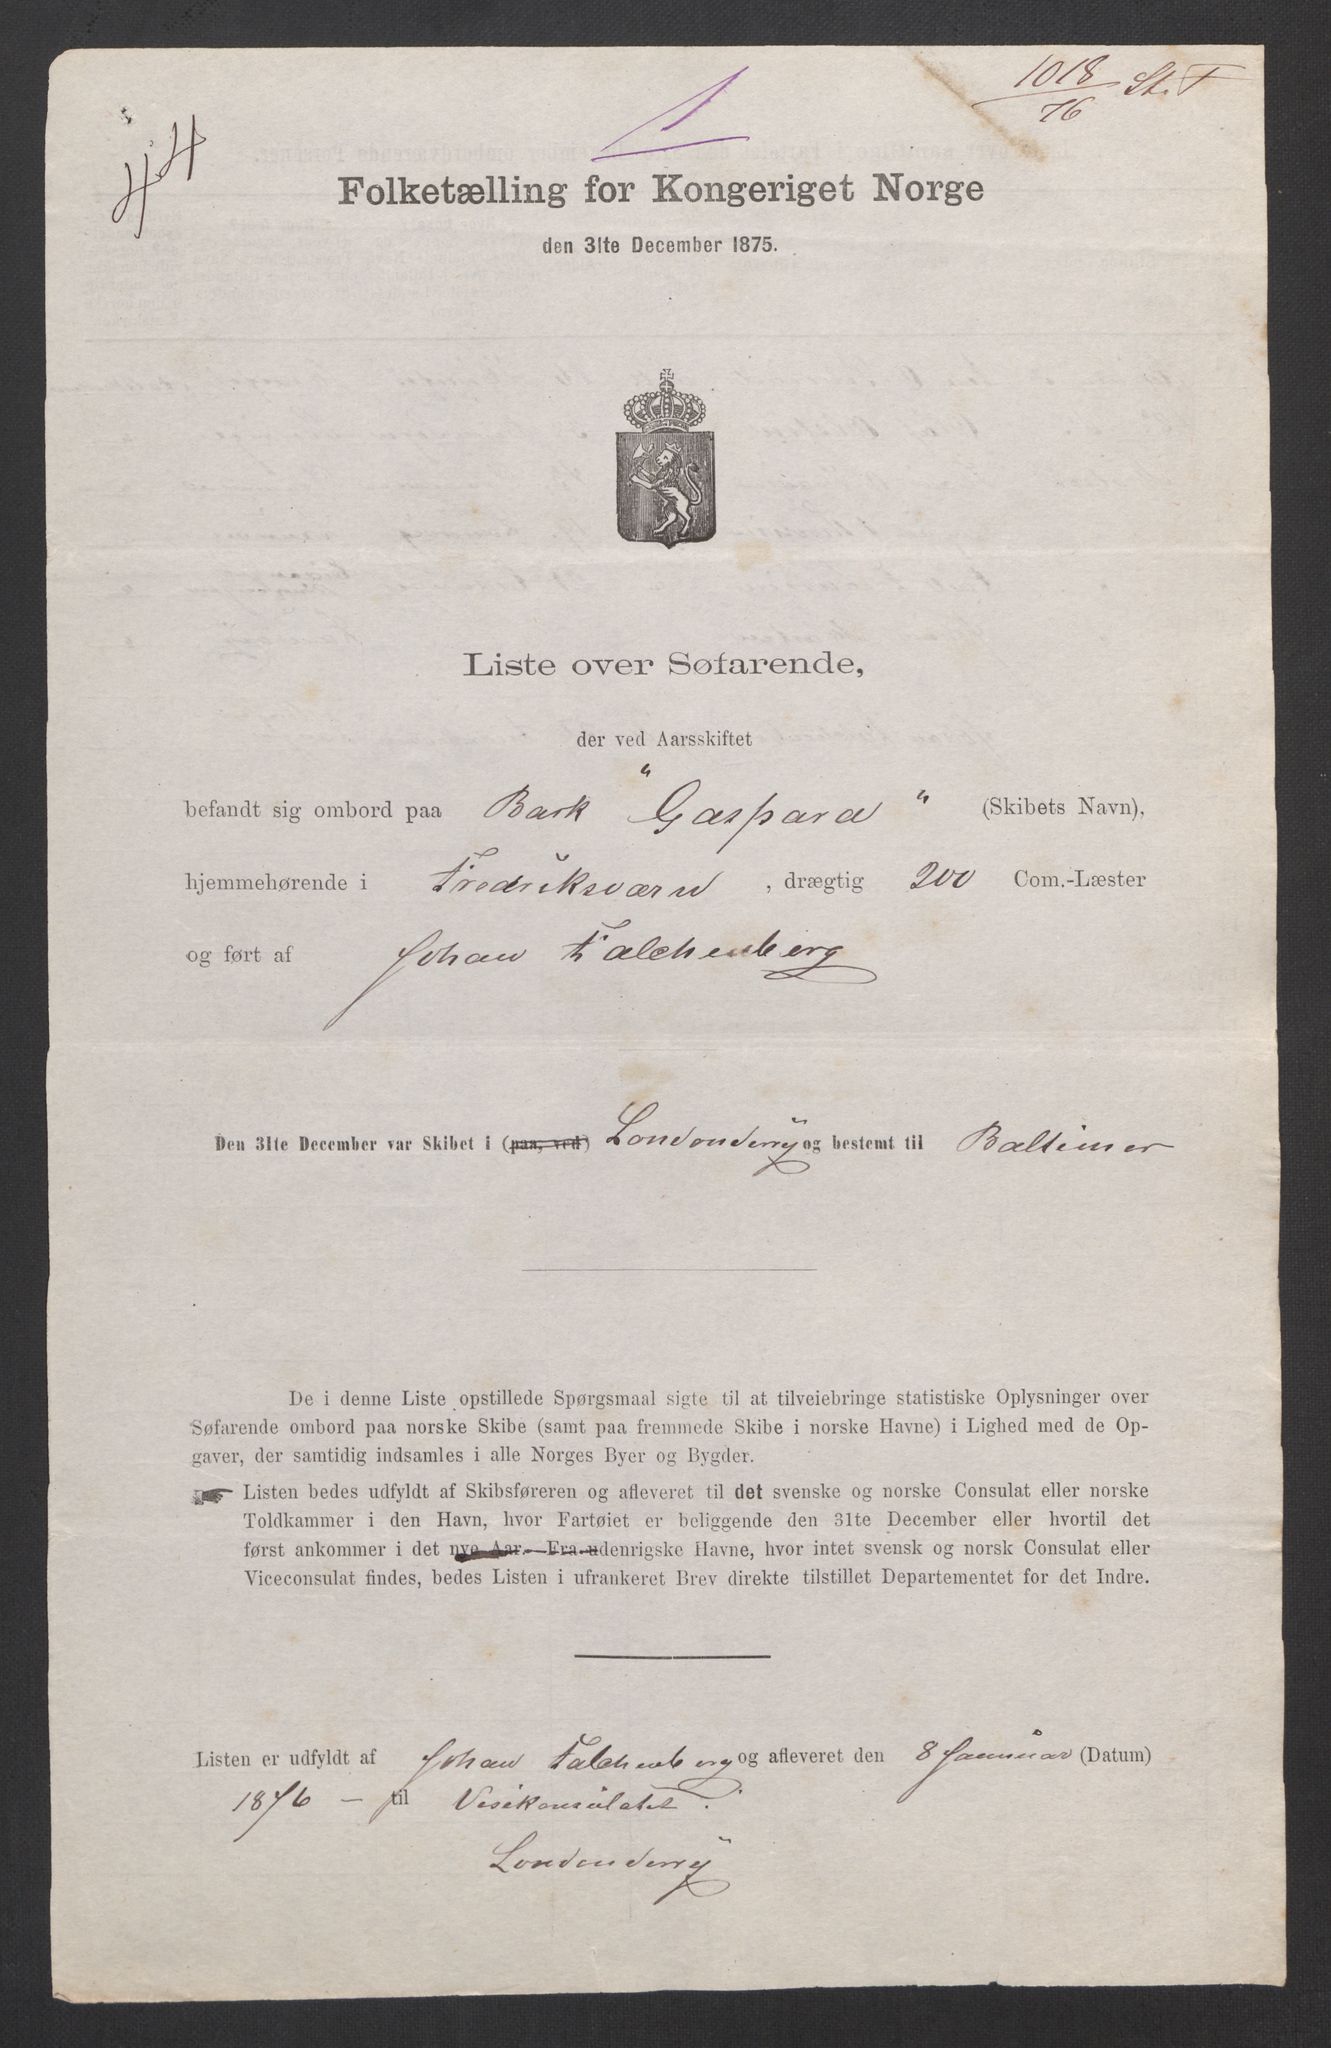 1018
76 St. T
1
44
Folketælling for Kongeriget Norge
den 31te December 1875.
Liste over Søfarende,
der ved Aarsskiftet
befandt sig ombord paa Bark "Gaspard" (Skibets Navn),
hjemmehørende i Fredriksværn, drægtig 200 Com.-Læster
og ført af Johan Falchenberg
Den 31te December var Skibet i (paa, ved) Londonderry og bestemt til Baltimor
De i denne Liste opstillede Spørgsmaal sigte til at tilveiebringe statistiske Oplysninger over
Søfarende ombord paa norske Skibe (samt paa fremmede Skibe i norske Havne) i Lighed med de Op-
gaver, der samtidig indsamles i alle Norges Byer og Bygder.
Listen bedes udfyldt af Skibsføreren og afleveret til det svenske og norske Consulat eller norske
Toldkammer i den Havn, hvor Fartøiet er beliggende den 31te December eller hvortil det
først ankommer i det nye Aar. Fra udenrigske Havne, hvor intet svensk og norsk Consulat eller
Viceconsulat findes, bedes Listen i ufrankeret Brev direkte tilstillet Departementet for det Indre.
Listen er udfyldt af Johan Falchenberg og afleveret den 8 Januar (Datum)
1876 – til Visekonsulatet.
Londonderry